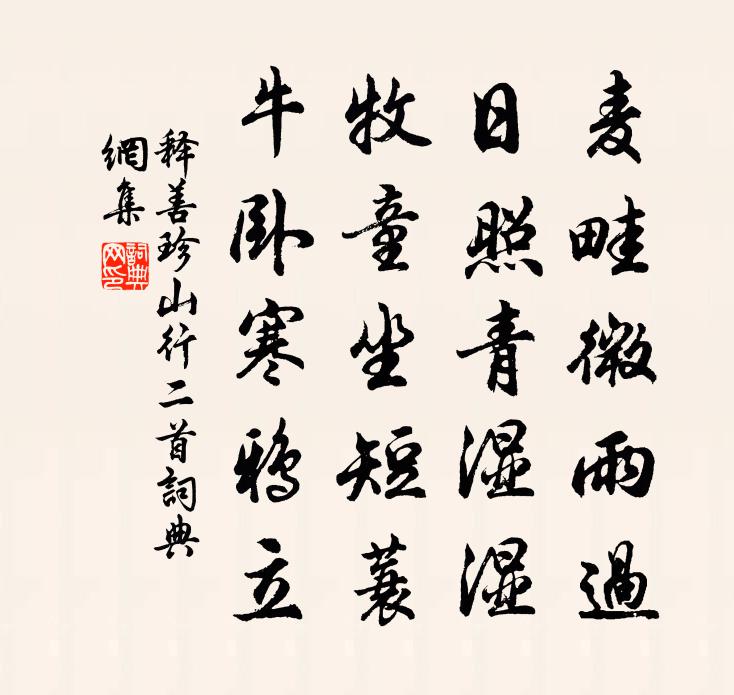 麦畦微雨過
日照青湿湿
牧童坐短蓑
牛卧寒鸦立
释善珍山行二首詞典
網集
詞典
网印